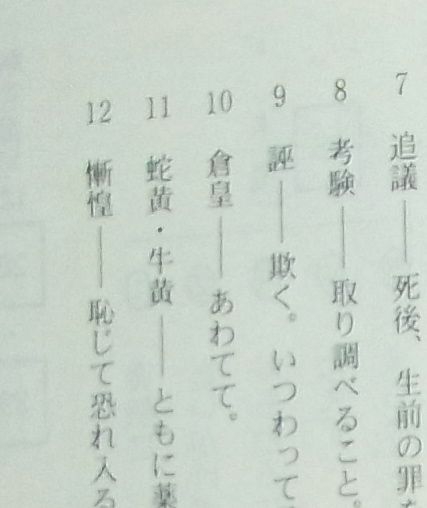 7 追議――死後、生前の罪
8 考験――取り調べること。
9 誣――欺く。いつわって
10 倉皇――あわてて。
11 蛇黄・牛黄――ともに薬
12 慚惶――恥じて恐れ入る